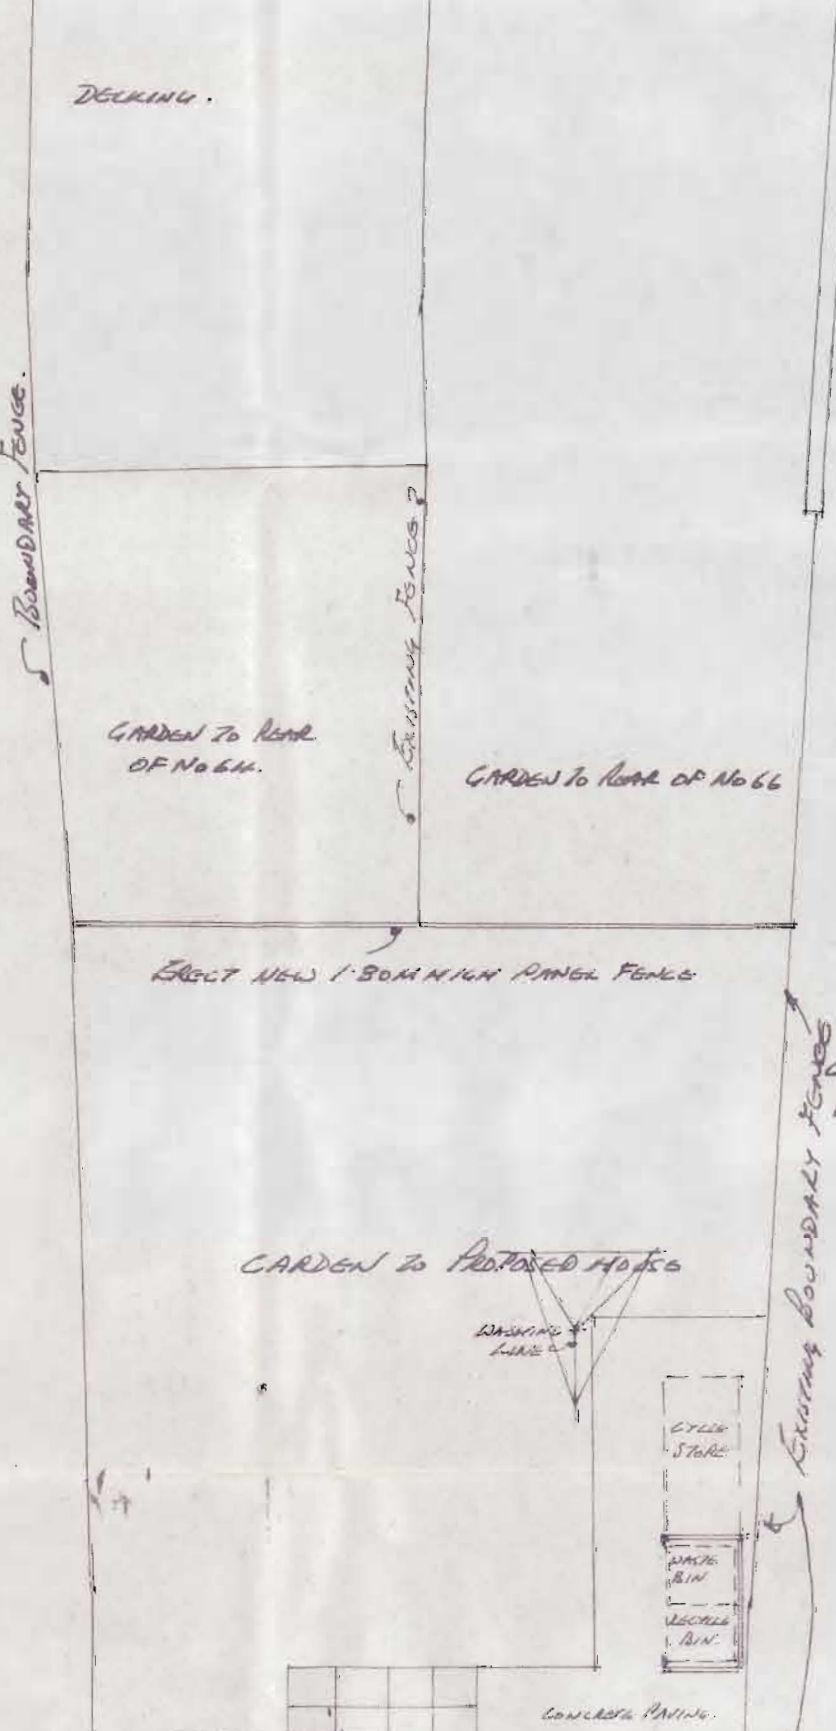 DECKING.
BOUNDARY FENCE.
EXISTING FENCE
GARDEN TO REAR
OF No 64.
GARDEN TO REAR OF No 66
ERECT NEW 1.80M HIGH PANEL FENCE
EXISTING BOUNDARY FENCE
GARDEN TO PROPOSED HOUSE
WASHING
LINE
CYCLE
STORE
WASTE
BIN
RECYCLE
BIN.
CONCRETE PAVING.